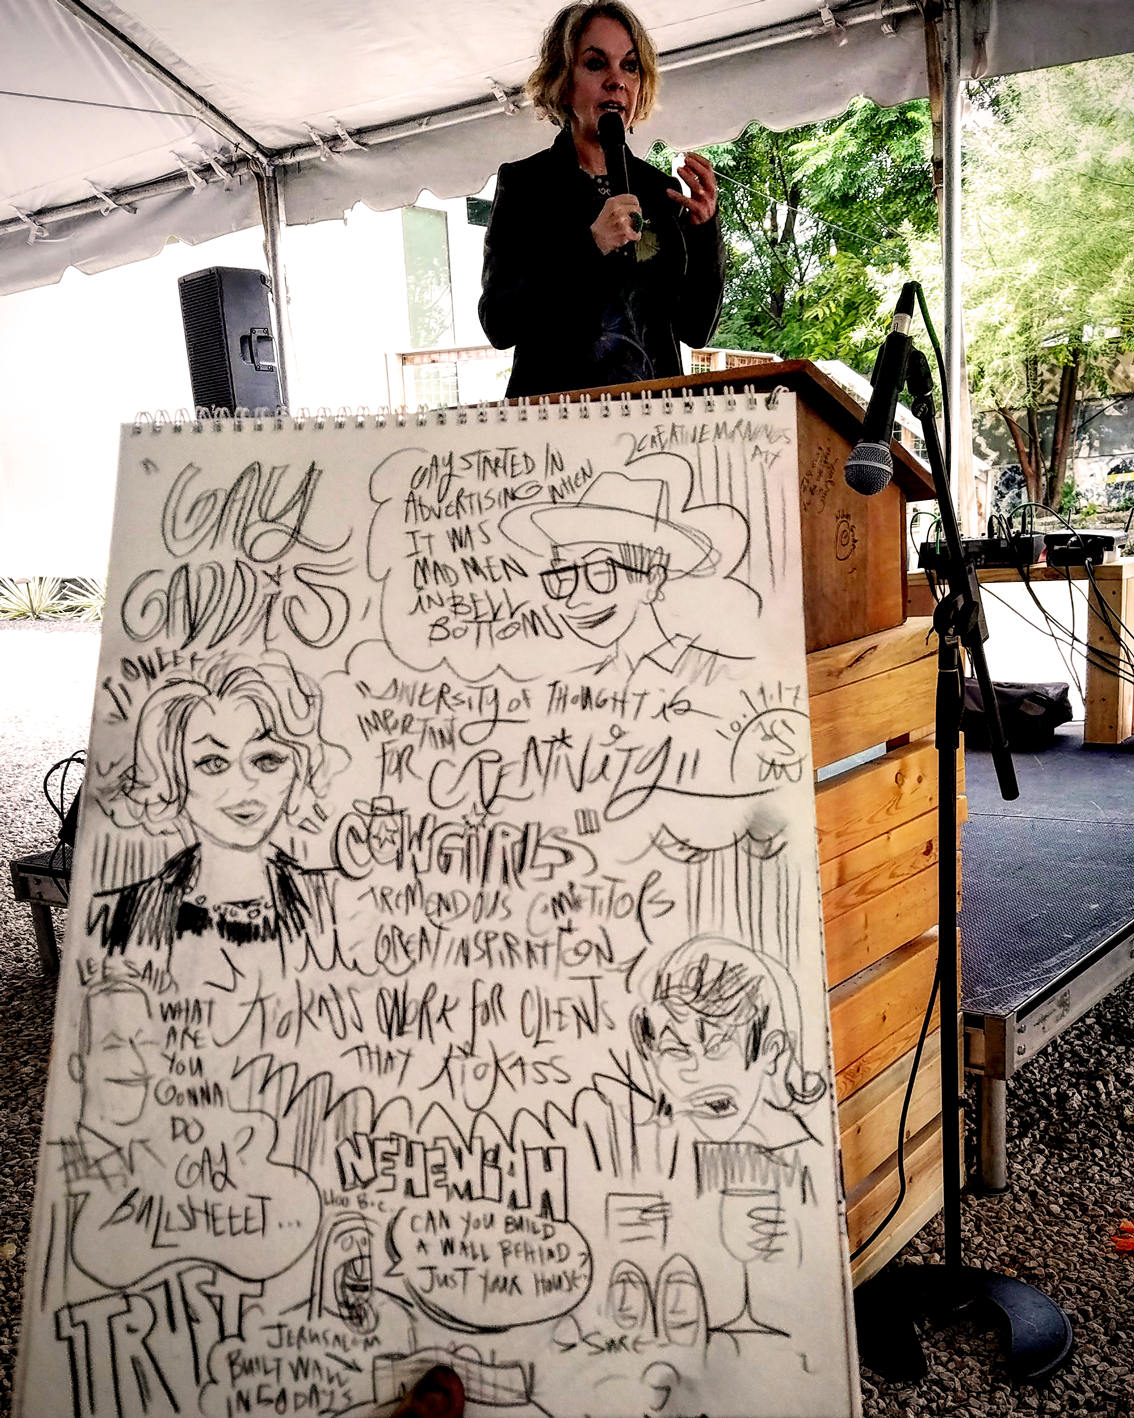 GAY
GADDIS
PIONEER
CREATIVE MORNINGS
ATX
GAY STARTED IN
ADVERTISING WHEN
IT WAS
MAD MEN
IN BELL
BOTTOMS
"DIVERSITY OF THOUGHT IS
IMPORTANT
FOR CREATIVITY"
COWGIRLS
TREMENDOUS COMPETITORS
GREAT INSPIRATION
KICKASS WORK FOR CLIENTS
THAT KICKASS
LEE SAID
WHAT
ARE
YOU
GONNA
DO
GAL?
BULLSHEEET...
NEHEMIAH
CAN YOU BUILD
A WALL BEHIND
JUST YOUR HOUSE?
SURE
TRUST
JERUSALOM
BUILT WALL
IN 60 DAYS